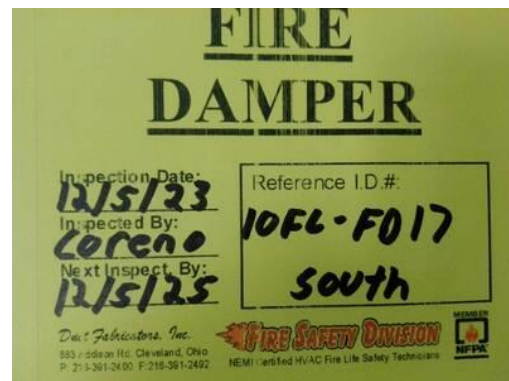 FIRE
DAMPER
Inspection Date:
12/5/23
Inspected By:
Coreno
Next Inspect. By:
12/5/25
Reference I.D.#:
10FL-FD17
south
Duct Fabricators, Inc.
883 Addison Rd. Cleveland, Ohio
P: 216-391-2400 F:216-391-2492
FIRE SAFETY DIVISION
NEMI Certified HVAC Fire Life Safety Technicians
MEMBER
NFPA